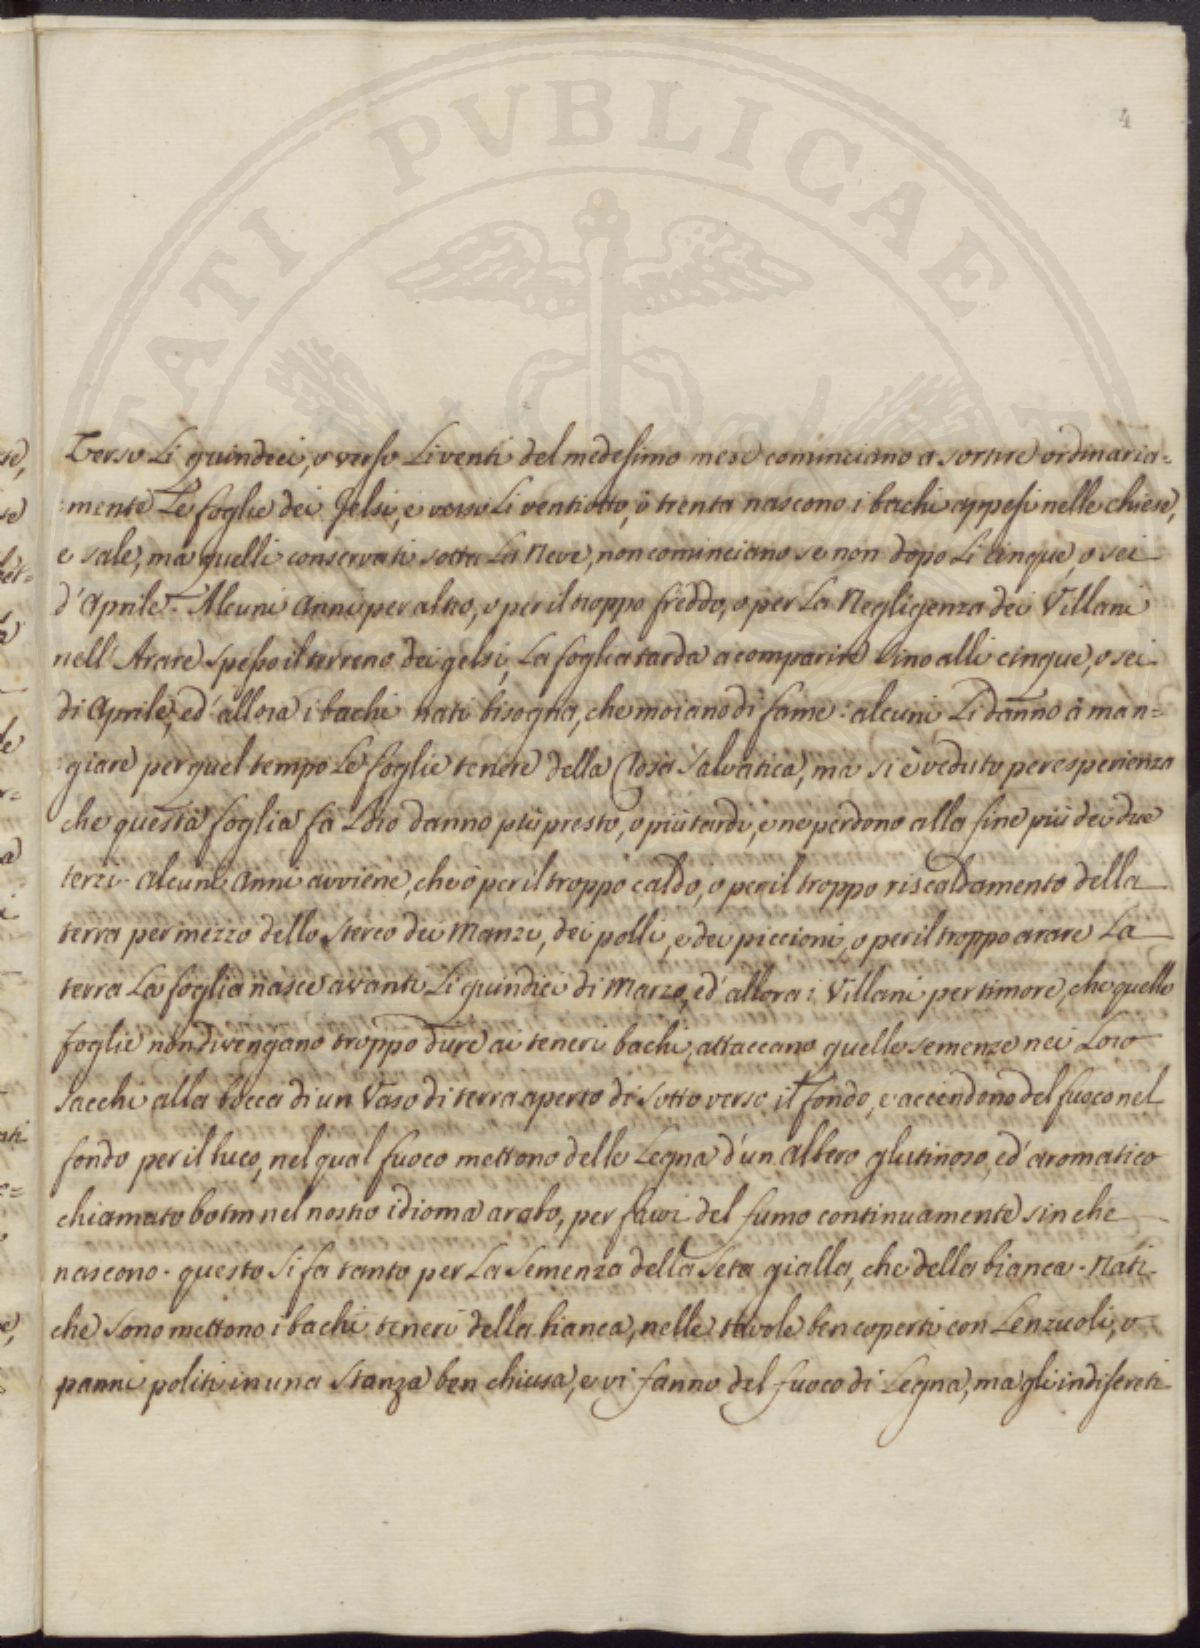 PVBLICAE
4
Verso Li quindeci, o verso Li venti del medesimo mese cominciano a sortire ordinaria=
:mente Le foglie dei Gelsi, e verso Li ventiotto, ò trenta nascono i bachi appesi nelle chiese,
e sale, ma quelli conservati sotta La Neve, non cominciano se non dopo Li cinque, o sei
d'Aprile. Alcuni Anni per altro, o per il troppo freddo, o per La Negligenza dei Villani
nell'Arare spesso il terreno dei gelsi, La foglia tarda a comparire sino alli cinque, o sei
di Aprile, ed' allora i bachi nati bisogna, che moiano di fame: alcuni Li danno à man=
:giare per quel tempo Le foglie tenere della Rosa Salvatica, ma si è veduto per esperienza
che questa foglia fà Loro danno più presto, o più tardi, e ne perdono alla fine più dei due
terzi. Alcuni Anni avviene, che ò per il troppo caldo, o per il troppo riscaldamento della
terra per mezzo dello Sterco dei Manzi, dei polli, e dei piccioni, o per il troppo arare La
terra La foglia nasce avanti Li quindici di Marzo, ed' allora i Villani per timore, che quelle
foglie non divengano troppo dure ai teneri bachi, attaccano quelle semenze nei Loro
sacchi alla bocca di un Vaso di terra aperto di sotto verso il fondo, e accendono del fuoco nel
fondo per il buco, nel qual fuoco mettono delle Legna d'un albero glutinoso, ed' aromatico
chiamato botm nel nostro idioma arabo, per farvi del fumo continuamente sin che
nascono. questo si fa tanto per La Semenza della Seta gialla, che della bianca. Nati
che sono mettono i bachi teneri della bianca, nelle tavole ben coperti con Lenzuoli, o
panni politi in una Stanza ben chiusa, e vi fanno del fuoco di Legna, ma gli indiscreti